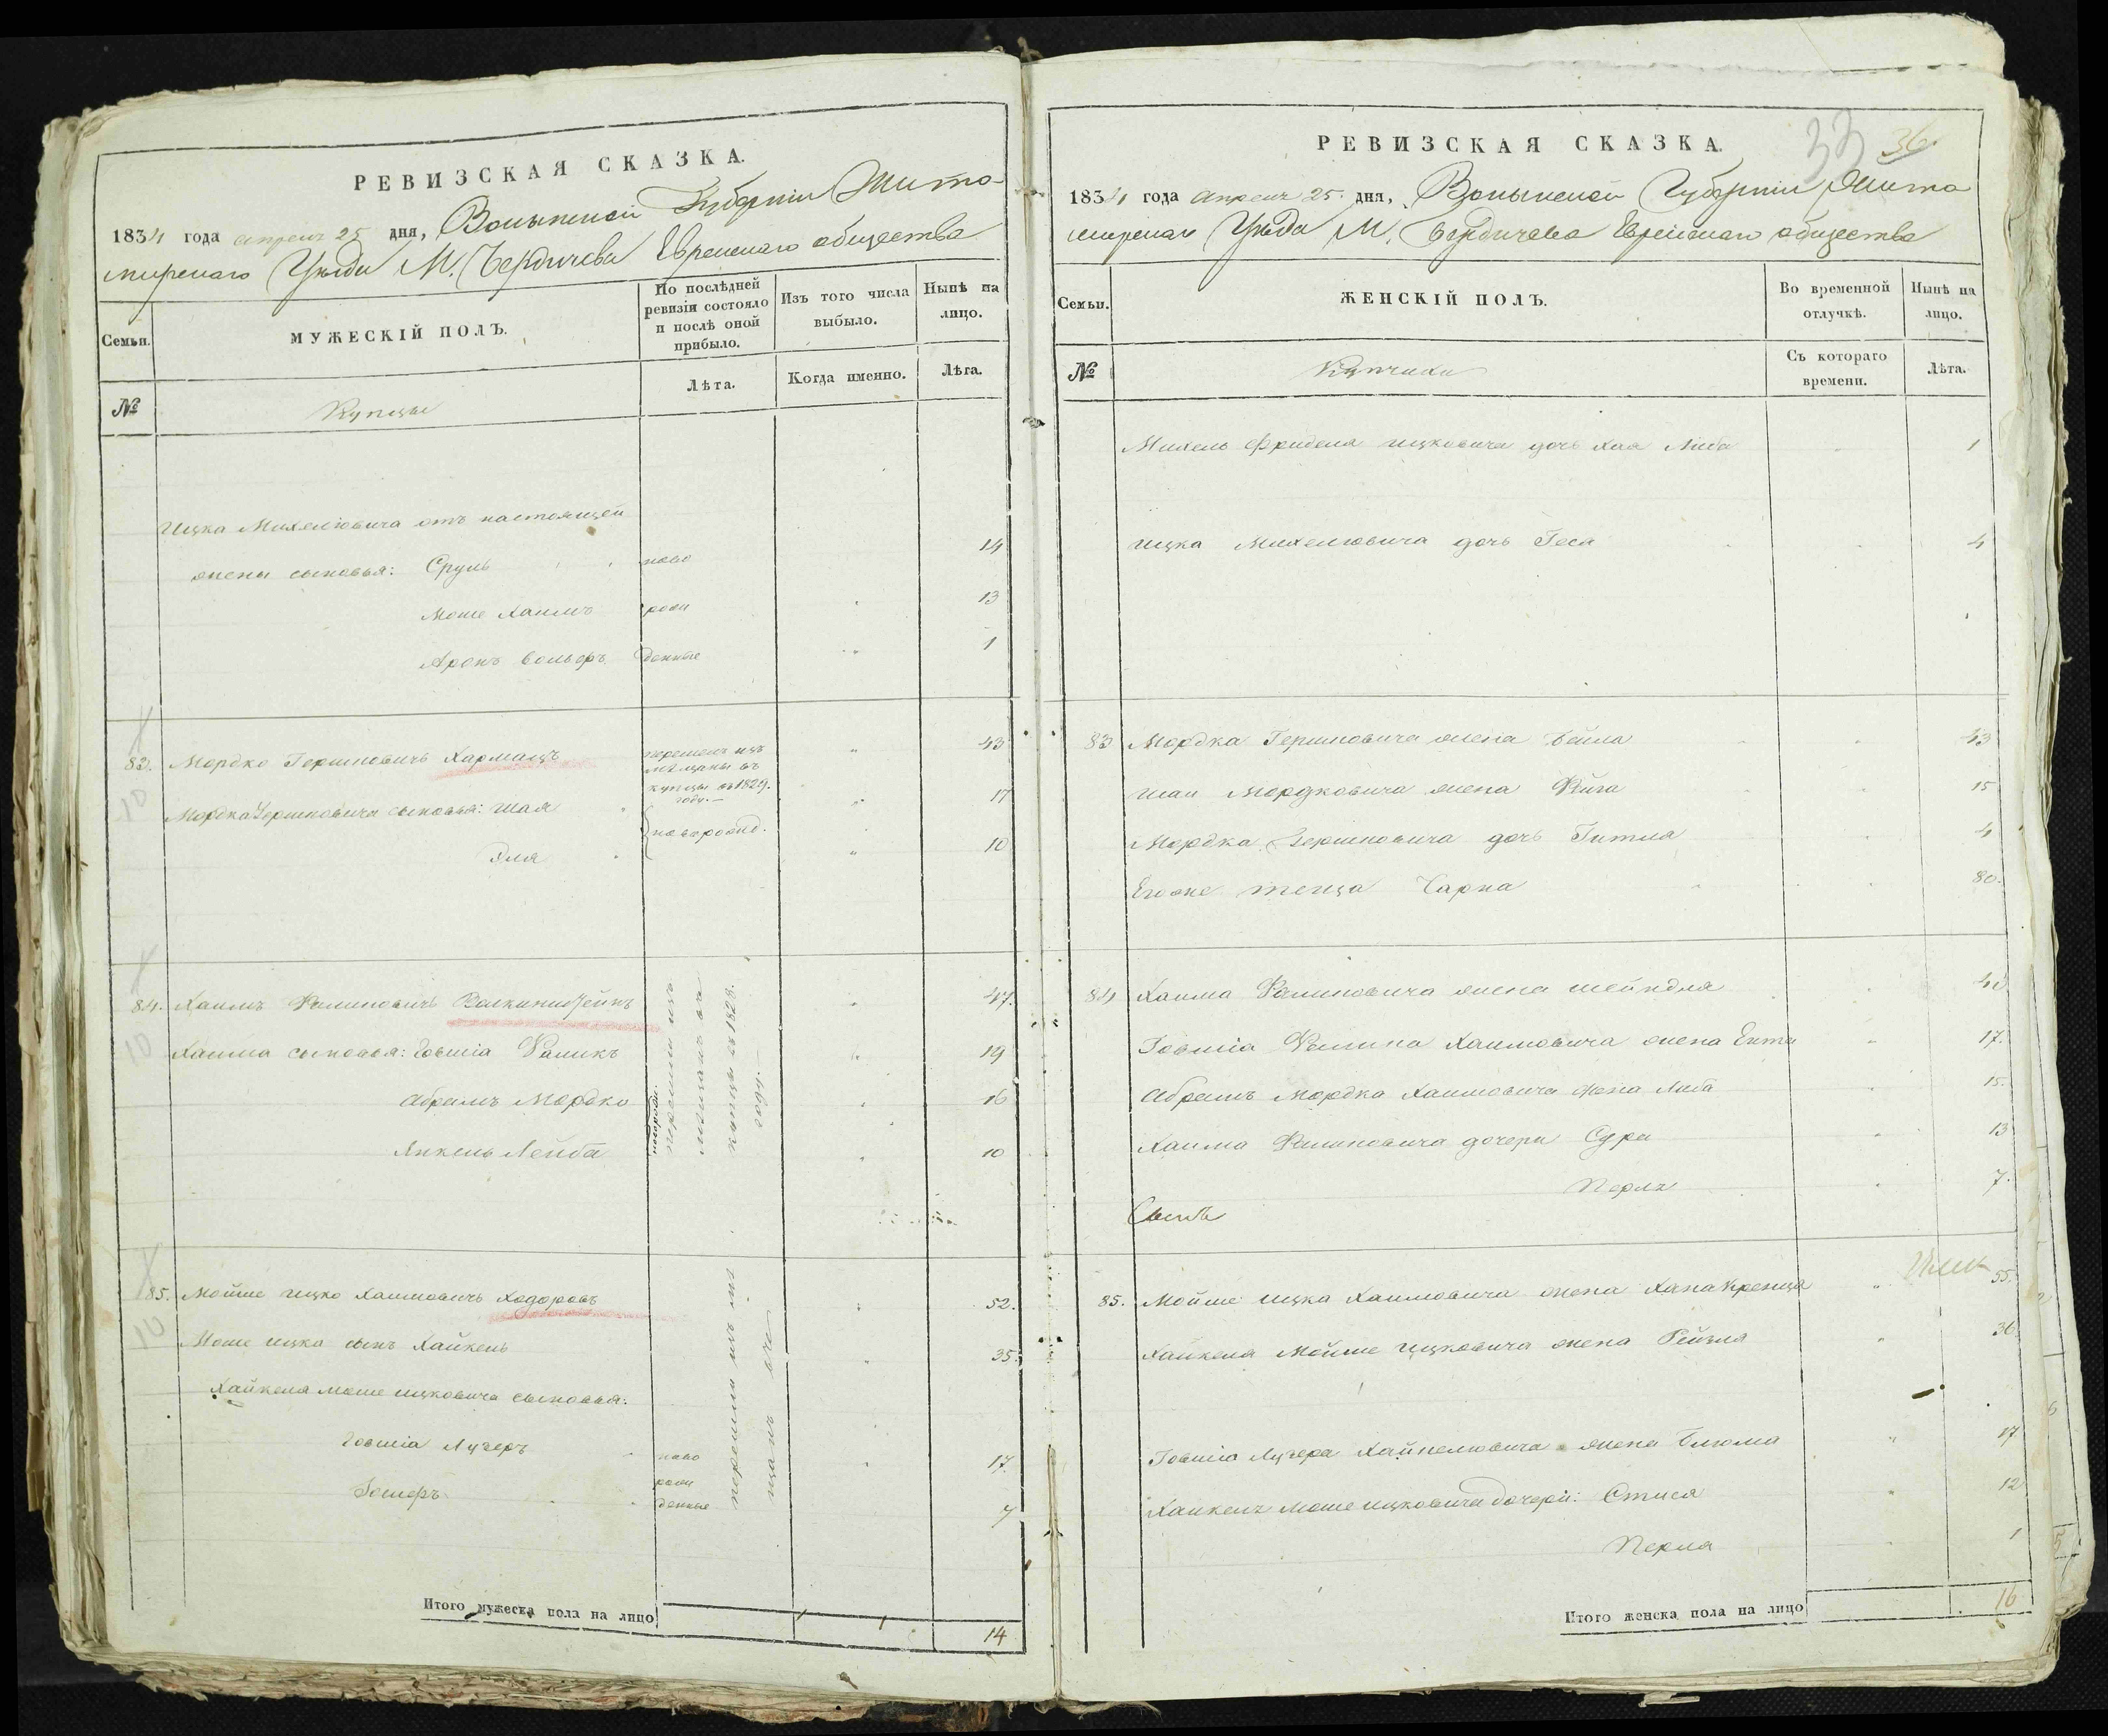 РЕВИЗСКАЯ СКАЗКА.
1834 года апреля 25 дня, Волынской Губернiи Жито-
мирскаго Уезда М. Бердичева Еврейскаго общества
Семьи.
МУЖЕСКIЙ ПОЛЪ.
По послѣдней ревизiи состояло и послѣ оной прибыло.
Изъ того числа выбыло.
Нынѣ на лицо.
№
Купцы
Лѣта.
Когда именно.
Лѣта.
Ицка Михелiовича отъ настоящей
жены сыновья: Сруль ново 14
Моше Хаимъ рож 13
Аронъ Вольфъ денные 1
83. Мордко Гершковичъ Хармацъ перешелъ изъ мѣщанъ въ купцы въ 1829. году.— " 43
Мордка Гершковича сыновья: Шая новорожд. " 17
Эля " 10
84. Хаимъ Фаликовичъ перешли изъ мѣщанъ въ купцы въ 1828. году.— " 47.
Хаима сыновья: Iовшiа Фаликъ " 19
Абрамъ Мордко новорожд. 16
Янкель Лейба 10
85. Мойше Ицко Хаимовичъ Ходоровъ перешли изъ мѣщанъ " 52.
Моше Ицка сынъ Хайкель " 35.
Хайкеля Моше Ицковича сыновья:
Iовшiа Лузеръ ново 17.
рож
денные 7
Итого мужеска пола на лицо 14
РЕВИЗСКАЯ СКАЗКА.
33 36.
1834 года апреля 25. дня, Волынской Губернiи Жито
мирскаго Уезда М. Бердичева Еврейскаго общества
Семьи.
ЖЕНСКIЙ ПОЛЪ.
Во временной отлучкѣ.
Нынѣ на лицо.
№
Купчихи
Съ котораго времени.
Лѣта.
Михель Фриделя Ицковича дочь Хая Либа 1
Ицка Михелiовича дочь Геса 4
83 Мордка Гершковича жена Бейла 43
Шаи Мордковича жена Фейга 15
Мордка Гершковича дочь Гитла 4
Егоже теща Чарна 80.
84 Хаима Фаликовича жена Шейндля
Iовшiа Фалика Хаимовича жена Ента 17.
Абрамъ Мордка Хаимовича жена Либа 15.
Хаима Фаликовича дочери Судра 13
Перля 7.
85. Мойше Ицка Хаимовича жена Хана Кренца " 55.
Хайкеля Мойше Ицковича жена Рейзля 36.
Iовшiа Лузера Хайкелiовича жена Блюма " 17
Хайкель Моше Ицковича дочери: Стися 12
Перла 1
Итого женска пола на лицо 16